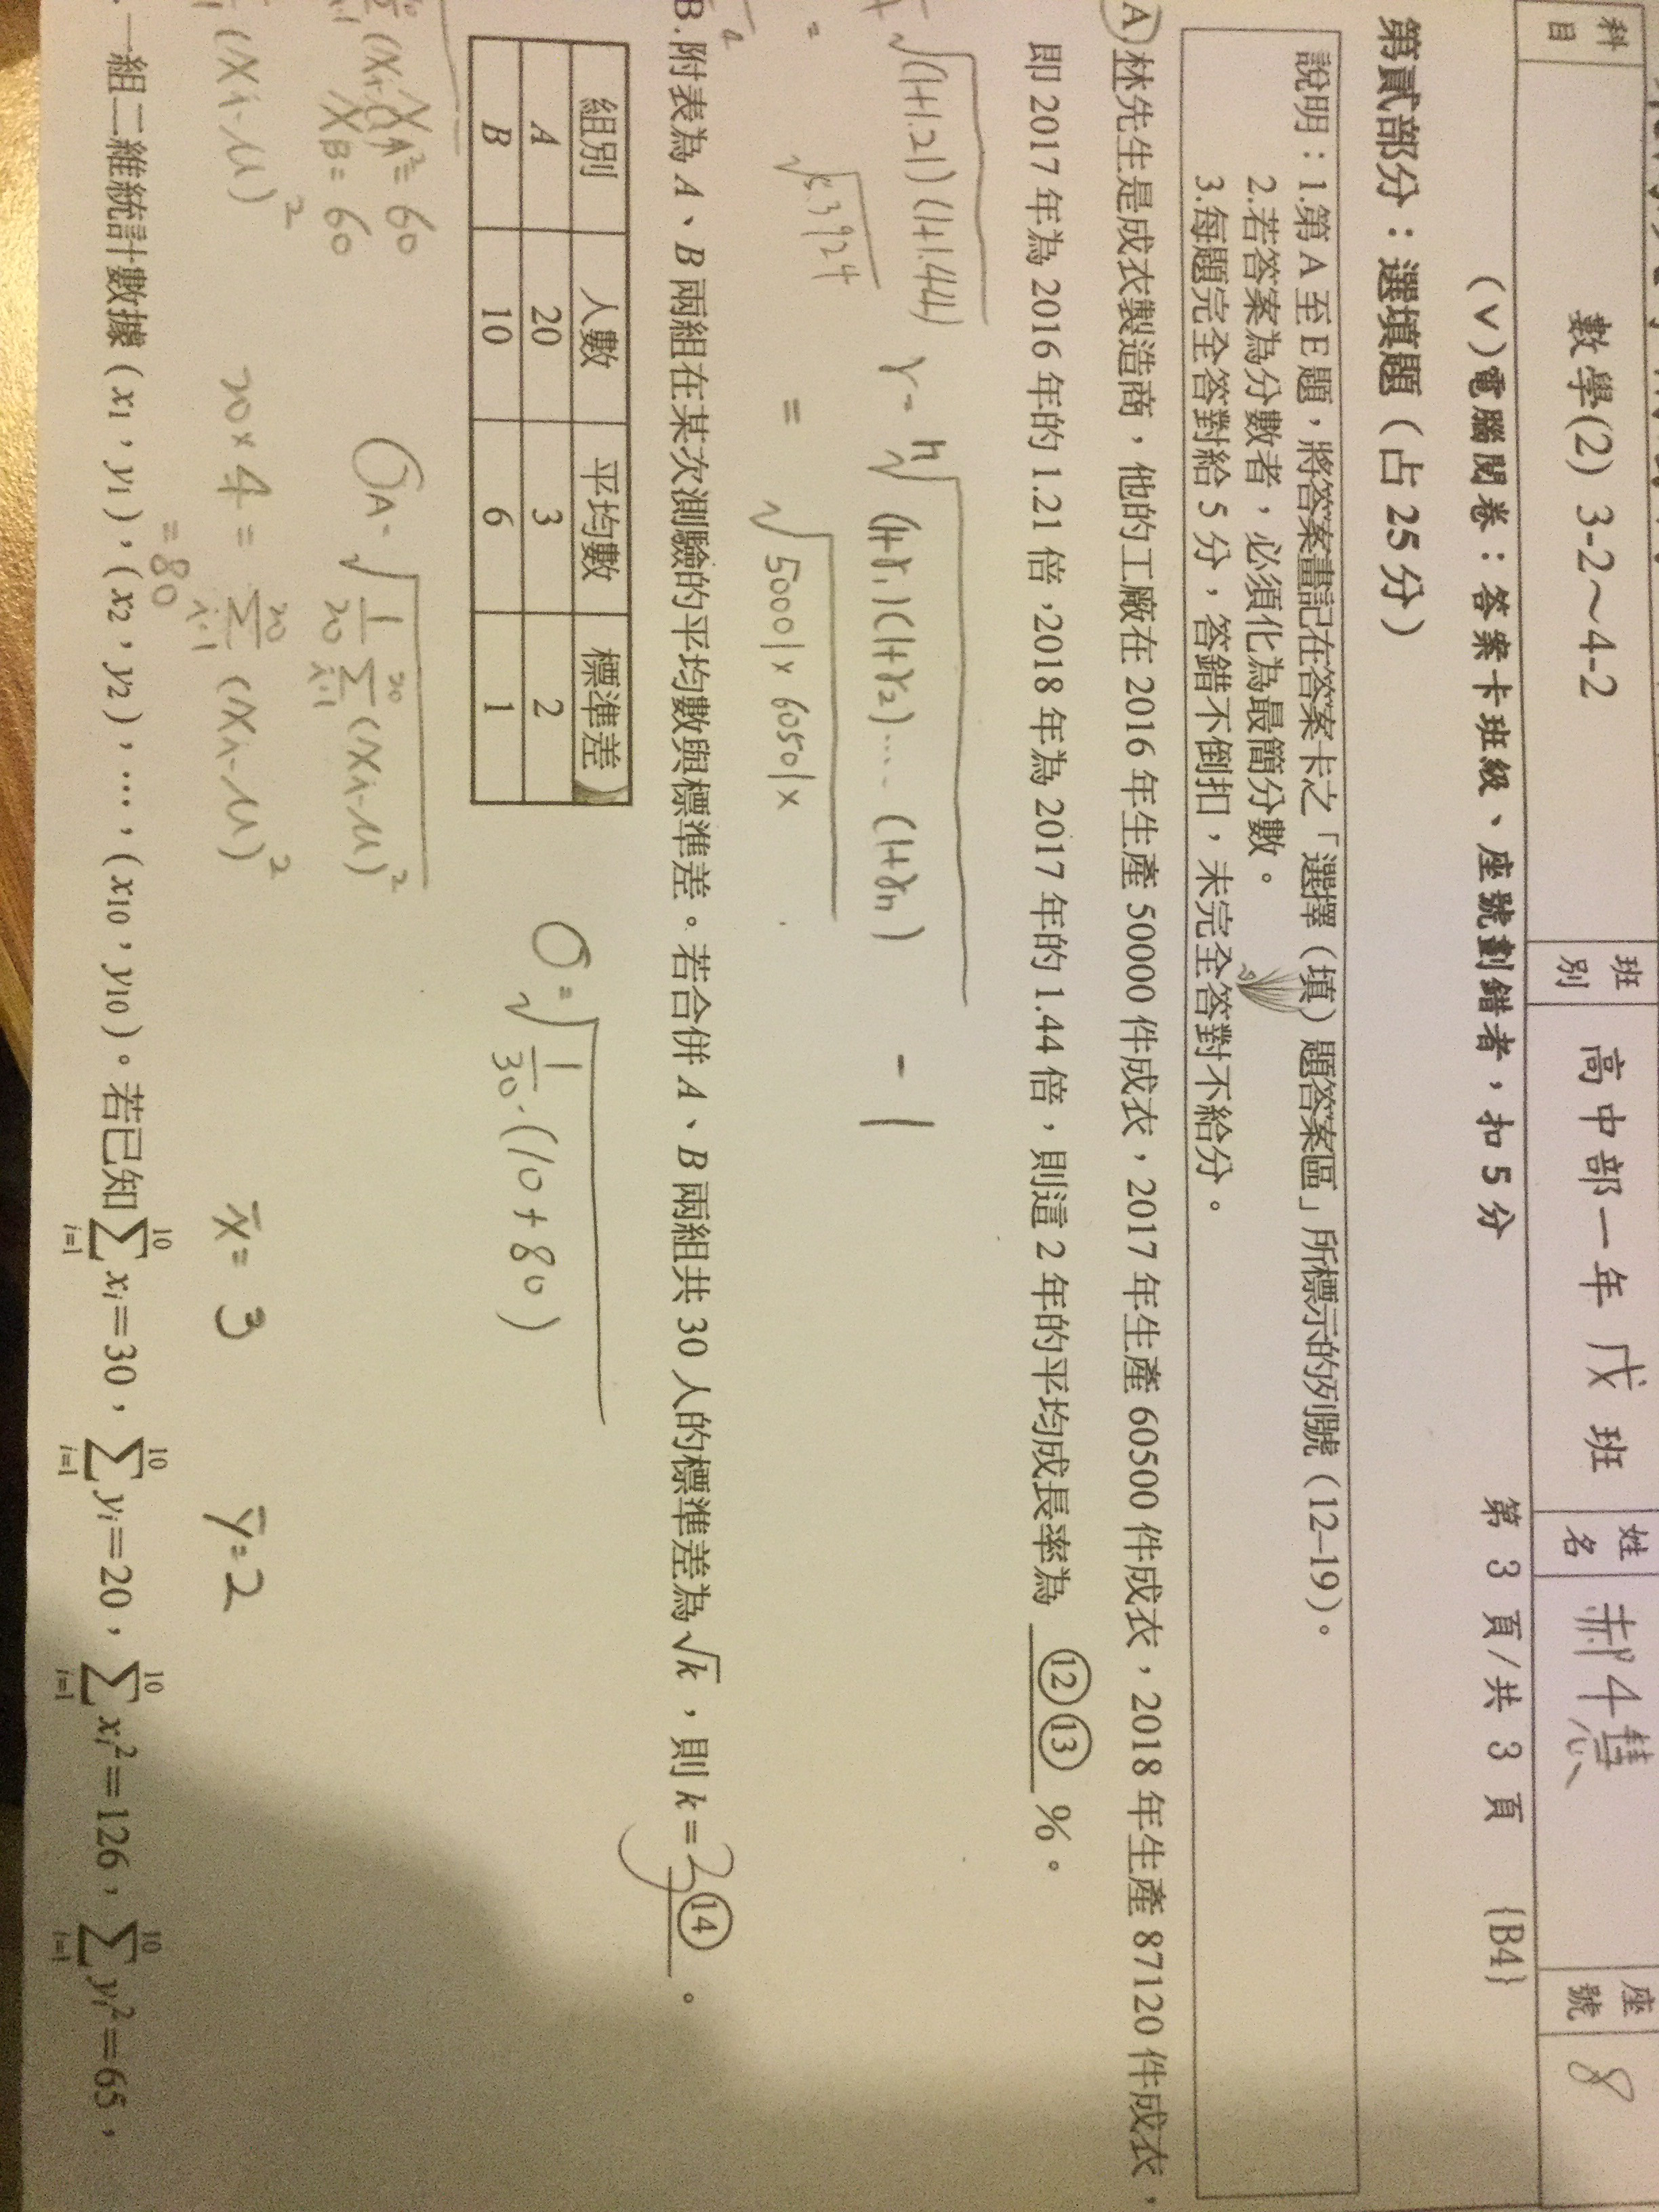 科目
數學(2) 3-2～4-2
班別
高中部一年戊班
姓名
座號
8
(V)電腦閱卷：答案卡班級、座號劃錯者，扣5分
第 3 頁/共 3 頁 {B4}
第貳部分：選填題（占25分）
說明：1.第A至E題，將答案畫記在答案卡之「選擇（填）題答案區」所標示的列號（12–19）。
2.若答案為分數者，必須化為最簡分數。
3.每題完全答對給5分，答錯不倒扣，未完全答對不給分。
A 林先生是成衣製造商，他的工廠在2016年生產50000件成衣，2017年生產60500件成衣，2018年生產87120件成衣，
即2017年為2016年的1.21倍，2018年為2017年的1.44倍，則這2年的平均成長率為 ⑫⑬ %。
√(1+1.21)(1+1.44)
γ= n√(1+γ1)(1+γ2)…(1+γn) - 1
=
= √50001×60501×
B. 附表為A、B兩組在某次測驗的平均數與標準差。若合併A、B兩組共30人的標準差為√k，則k= 3 ⑭ 。
組別 人數 平均數 標準差
A 20 3 2
B 10 6 1
σ=√1/30·(10+80)
XA = 60
XB = 60
σA=√1/20 Σ20 i=1 (Xi-μ)²
(Xi-μ)²
20×4= Σ20 i=1 (Xi-μ)²
=80
x̄= 3
ȳ=2
一組二維統計數據（x1，y1），（x2，y2），…，（x10，y10）。若已知Σ10 i=1 xi=30，Σ10 i=1 yi=20，Σ10 i=1 xi²=126，Σ10 i=1 yi²=65，